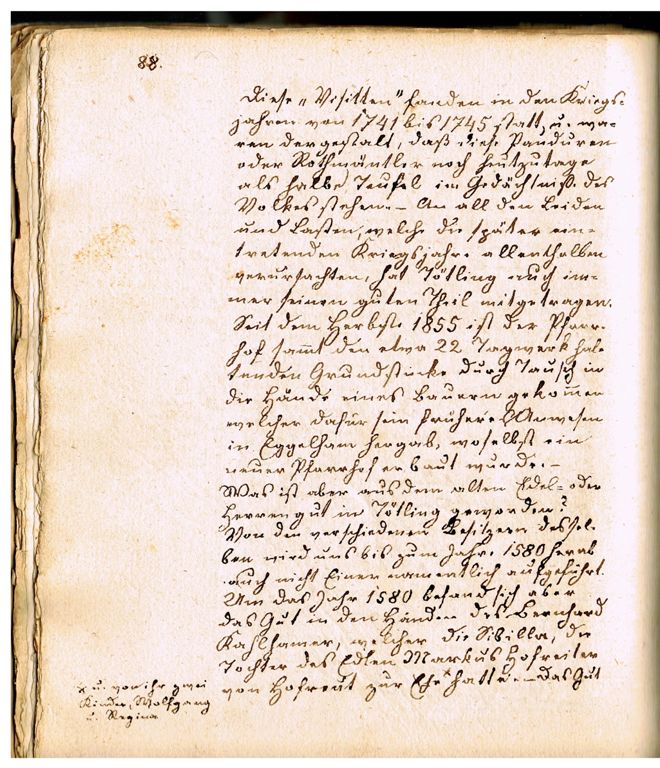 88.
Diese „Visitten" fanden in den Kriegs-
jahren von 1741 bis 1745 statt, u. wa-
ren dergestalt, daß diese Panduren
oder Rothmäntler noch heutzutage
als halbe Teufel im Gedächtniße des
Volkes stehen. – An all den Leiden
und Lasten, welche die später ein-
tretenden Kriegsjahre allenthalben
verursachten, hat Tötling auch im-
mer seinen guten Theil mitgetragen.
Seit dem Herbste 1855 ist der Pfarr-
hof sammt den etwa 22 Tagwerk hal-
tenden Grundstücke durch Tausch in
die Hände eines Bauern gekommen
welcher dafür sein früheres Anwesen
in Eggelham hergab, woselbst ein
neuer Pfarrhof erbaut wurde. –
Was ist aber aus dem alten Edel- oder
Herrengut in Tötling geworden?
Von den verschiedenen Besitzern dessel-
ben wird uns bis zum Jahre 1580 herab
auch nicht Einer namentlich aufgeführt.
Um das Jahr 1580 befand sich aber
das Gut in den Händen des Bernhard
Kahlhamer, welcher die Sibilla, die
Tochter des Edlen Markus Hofreiter
von Hofreut zur Ehe x hatte. – Das Gut
x u. von ihr zwei
Kinder, Wolfgang
u. Regina